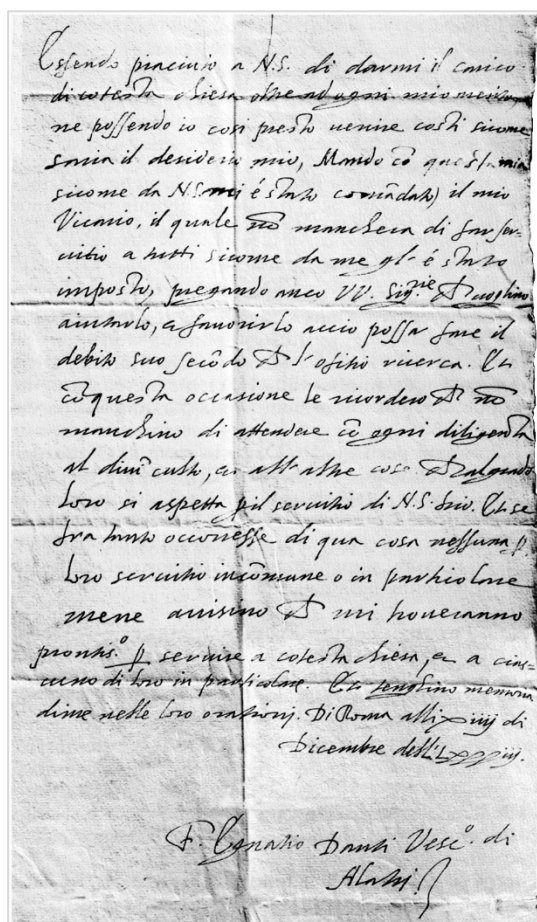 Essendo piaciuto a N.S. di darmi il carico
di cotesta chiesa oltre ad ogni mio merito
ne possendo io così presto venire costì sicome
saria il desiderio mio, Mando cõ questa mia
sicome da NS mi é stato comãdato) il mio
Vicario, il quale nõ mancherà di far ser-
vitio a tutti sicome da me gl' é stato
imposto, pregando anco VV. Sig.rie voglino
aiutarlo, et favorirlo acciò possa fare il
debito suo secõdo l'ofitio ricerca. Et
cõ questa occasione le ricordero nõ
manchino di attendere cõ ogni diligentia
al divin culto, et all' altre cose
loro si aspetta il servitio di N.S. Et se
fra tanto occorresse di qua cosa nessuna
loro servitio in comune o in particolare
mene avisino mi troveranno
prontis.o servire a cotesta chiesa, et a cias=
cuno di loro in particolare. Et tenghino memoria
dime nelle loro orationi. Di Roma alli xiiij di
Dicembre dell' Lxxxiij.
F. Egnatio Danti Vesc.o di
Alatri